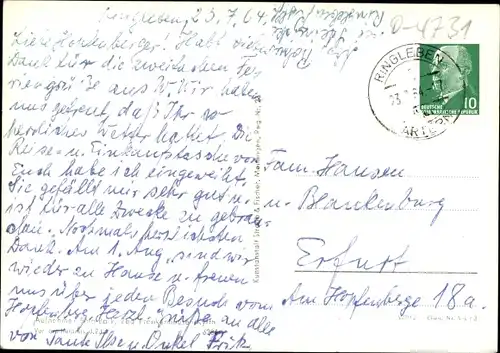 Ringleben, 23. 7. 64.
Liebe Hordenberger. Habt vielen
Dank für die zweifachen Fe-
riengrüße aus W. Wir haben
uns gefreut, daß Ihr so
herrliches Wetter hattet. Die
Reise- u. Einkaufstasche von
Euch habe ich eingeweiht.
Sie gefällt mir sehr gut u.
ist für alle Zwecke zu gebrau-
chen. Nochmals herzlichsten
Dank. Am 1. Aug. sind wir
wieder zu Hause u. freuen
uns über jeden Besuch vom
Hordenberg. Herzl. Grüße an alle
von Tante Ilse u. Onkel Erik
D-4731
RINGLEBEN
ARTERN
DEUTSCHE
DEMOKRATISCHE REPUBLIK
10
Fam. Hansen
u. Blankenburg
Erfurt
Am Hopfenberge 18a.